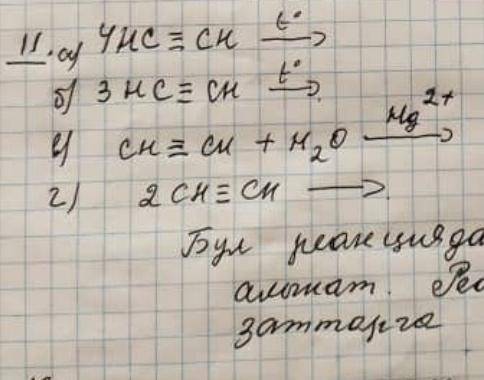 11. а) 4HC ≡ CH —t°→
б) 3 HC ≡ CH —t°→
в) CH ≡ CH + H₂O —Hg²⁺→
г) 2 CH ≡ CH ⟶
Бул реакцияда
алынат. Реа
заттарга